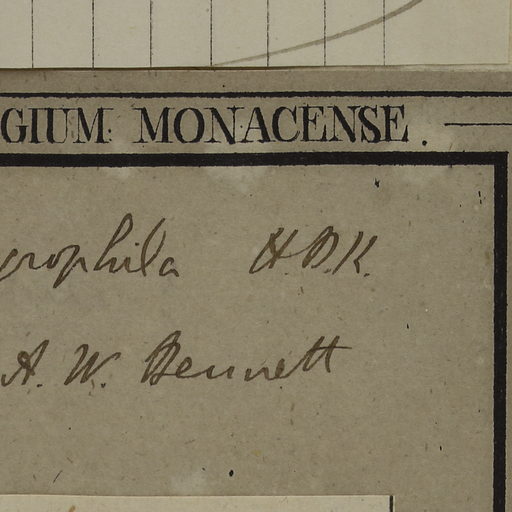 GIUM MONACENSE.
grophila H.B.K.
A. W. Bennett